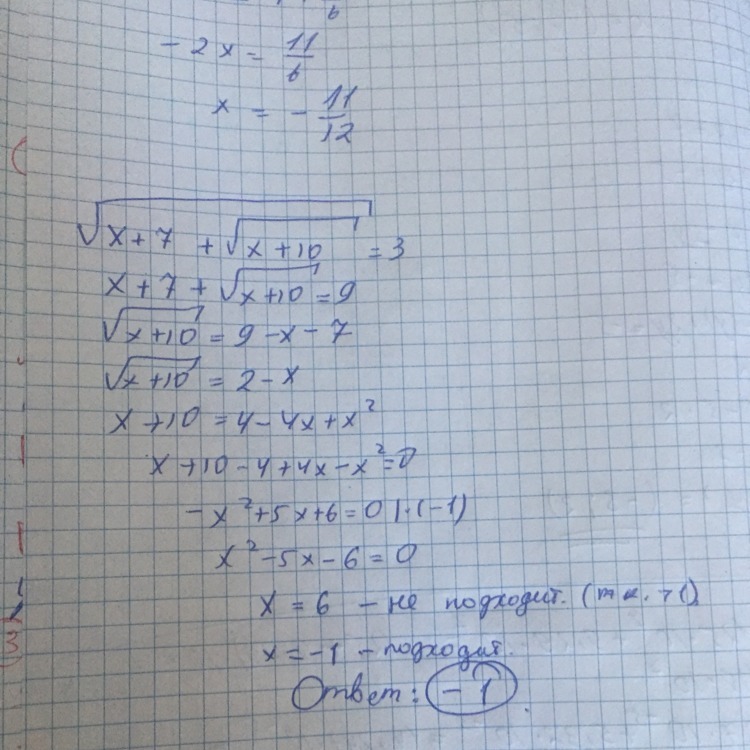 6
- 2x = 11/6
x = - 11/12
√(x+7 + √(x+10)) = 3
x+7 + √(x+10) = 9
√(x+10) = 9 - x - 7
√(x+10) = 2 - x
x + 10 = 4 - 4x + x²
x + 10 - 4 + 4x - x² = 0
- x² + 5x + 6 = 0 | · (-1)
x² - 5x - 6 = 0
x = 6 - не подходит. (т.к.
x = -1 - подходит.
Ответ: -1.